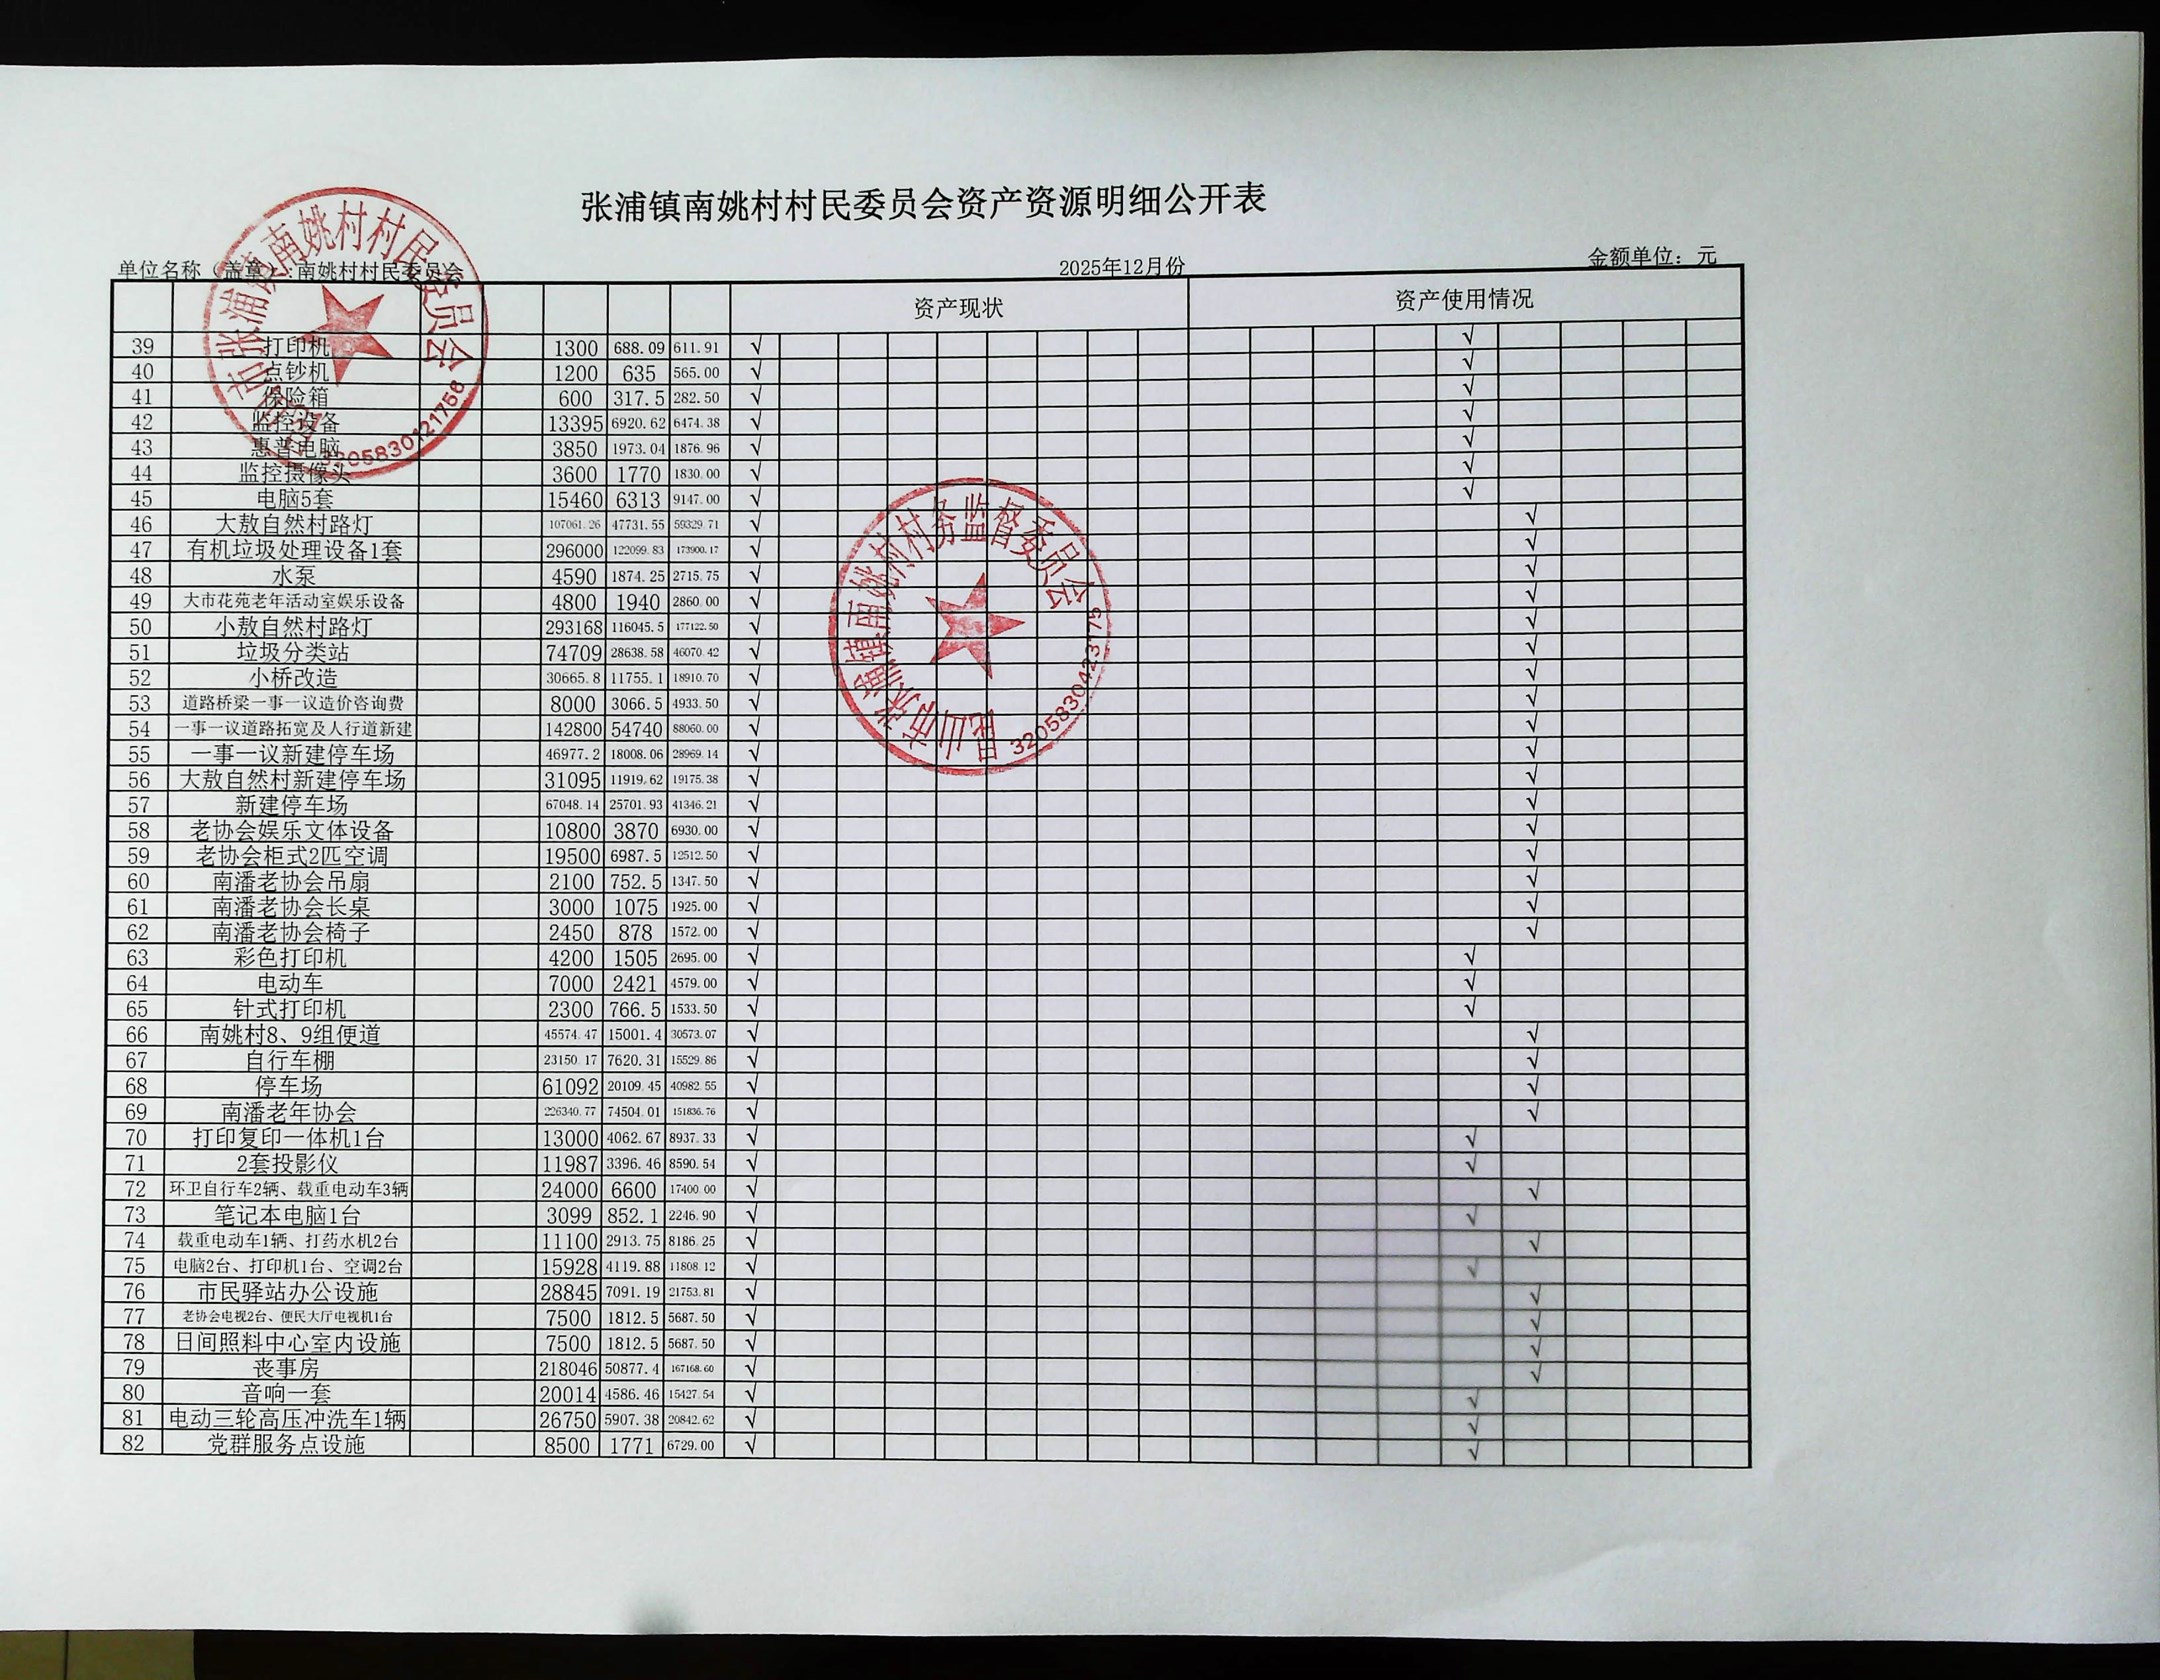 张浦镇南姚村村民委员会资产资源明细公开表
单位名称（盖章）:南姚村村民委员会 2025年12月份 金额单位：元
资产现状 资产使用情况
39 打印机 1300 688.09 611.91 √ √
40 点钞机 1200 635 565.00 √ √
41 保险箱 600 317.5 282.50 √ √
42 监控设备 13395 6920.62 6474.38 √ √
43 惠普电脑 3850 1973.04 1876.96 √ √
44 监控摄像头 3600 1770 1830.00 √ √
45 电脑5套 15460 6313 9147.00 √ √
46 大敖自然村路灯 107061.26 47731.55 59329.71 √ √
47 有机垃圾处理设备1套 296000 122099.83 173900.17 √ √
48 水泵 4590 1874.25 2715.75 √ √
49 大市花苑老年活动室娱乐设备 4800 1940 2860.00 √ √
50 小敖自然村路灯 293168 116045.5 177122.50 √ √
51 垃圾分类站 74709 28638.58 46070.42 √ √
52 小桥改造 30665.8 11755.1 18910.70 √ √
53 道路桥梁一事一议造价咨询费 8000 3066.5 4933.50 √ √
54 一事一议道路拓宽及人行道新建 142800 54740 88060.00 √ √
55 一事一议新建停车场 46977.2 18008.06 28969.14 √ √
56 大敖自然村新建停车场 31095 11919.62 19175.38 √ √
57 新建停车场 67048.14 25701.93 41346.21 √ √
58 老协会娱乐文体设备 10800 3870 6930.00 √ √
59 老协会柜式2匹空调 19500 6987.5 12512.50 √ √
60 南潘老协会吊扇 2100 752.5 1347.50 √ √
61 南潘老协会长桌 3000 1075 1925.00 √ √
62 南潘老协会椅子 2450 878 1572.00 √ √
63 彩色打印机 4200 1505 2695.00 √ √
64 电动车 7000 2421 4579.00 √ √
65 针式打印机 2300 766.5 1533.50 √ √
66 南姚村8、9组便道 45574.47 15001.4 30573.07 √ √
67 自行车棚 23150.17 7620.31 15529.86 √ √
68 停车场 61092 20109.45 40982.55 √ √
69 南潘老年协会 226340.77 74504.01 151836.76 √ √
70 打印复印一体机1台 13000 4062.67 8937.33 √ √
71 2套投影仪 11987 3396.46 8590.54 √ √
72 环卫自行车2辆、载重电动车3辆 24000 6600 17400.00 √ √
73 笔记本电脑1台 3099 852.1 2246.90 √ √
74 载重电动车1辆、打药水机2台 11100 2913.75 8186.25 √ √
75 电脑2台、打印机1台、空调2台 15928 4119.88 11808.12 √ √
76 市民驿站办公设施 28845 7091.19 21753.81 √ √
77 老协会电视2台、便民大厅电视机1台 7500 1812.5 5687.50 √ √
78 日间照料中心室内设施 7500 1812.5 5687.50 √ √
79 丧事房 218046 50877.4 167168.60 √ √
80 音响一套 20014 4586.46 15427.54 √ √
81 电动三轮高压冲洗车1辆 26750 5907.38 20842.62 √ √
82 党群服务点设施 8500 1771 6729.00 √ √
昆山市张浦镇南姚村村民委员会
3205830121758
昆山市张浦镇南姚村村务监督委员会
3205830423175